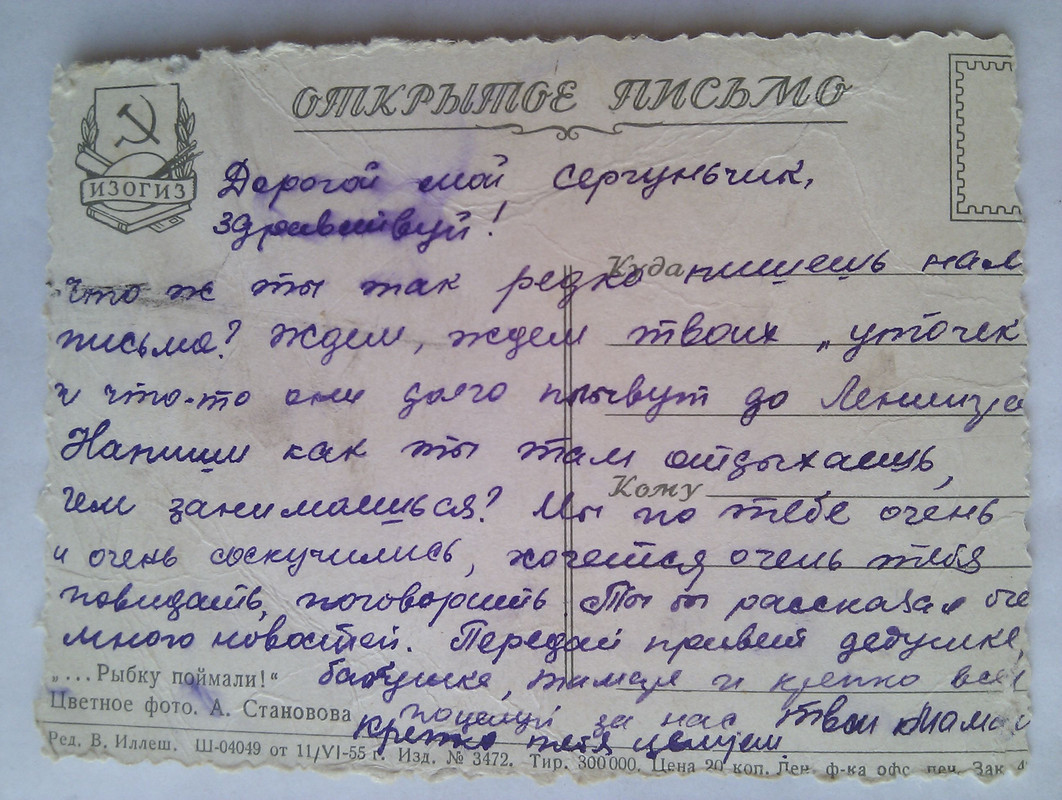 ОТКРЫТОЕ ПИСЬМО
ИЗОГИЗ
Дорогой мой Сергуньчик,
здравствуй!
Куда
Что ж ты так редко пишешь нам
письма? Ждем, ждем твоих „уточек
и что-то они долго плывут до
Напиши как ты там отдыхаешь,
Кому
чем занимаешься? Мы по тебе очень
и очень соскучились, хочется очень тебя
повидать, поговорить. Ты бы рассказал
много новостей. Передай привет дедушке,
„...Рыбку поймали!“
бабушке, и крепко всех
Цветное фото. А. Становова
поцелуй за нас твои
крепко тебя целуем
Ред. В. Иллеш. Ш-04049 от 11/VI-55 г. Изд. № 3472. Тир. 300000. Цена 20 коп. Лен. ф-ка офс. печ. Зак